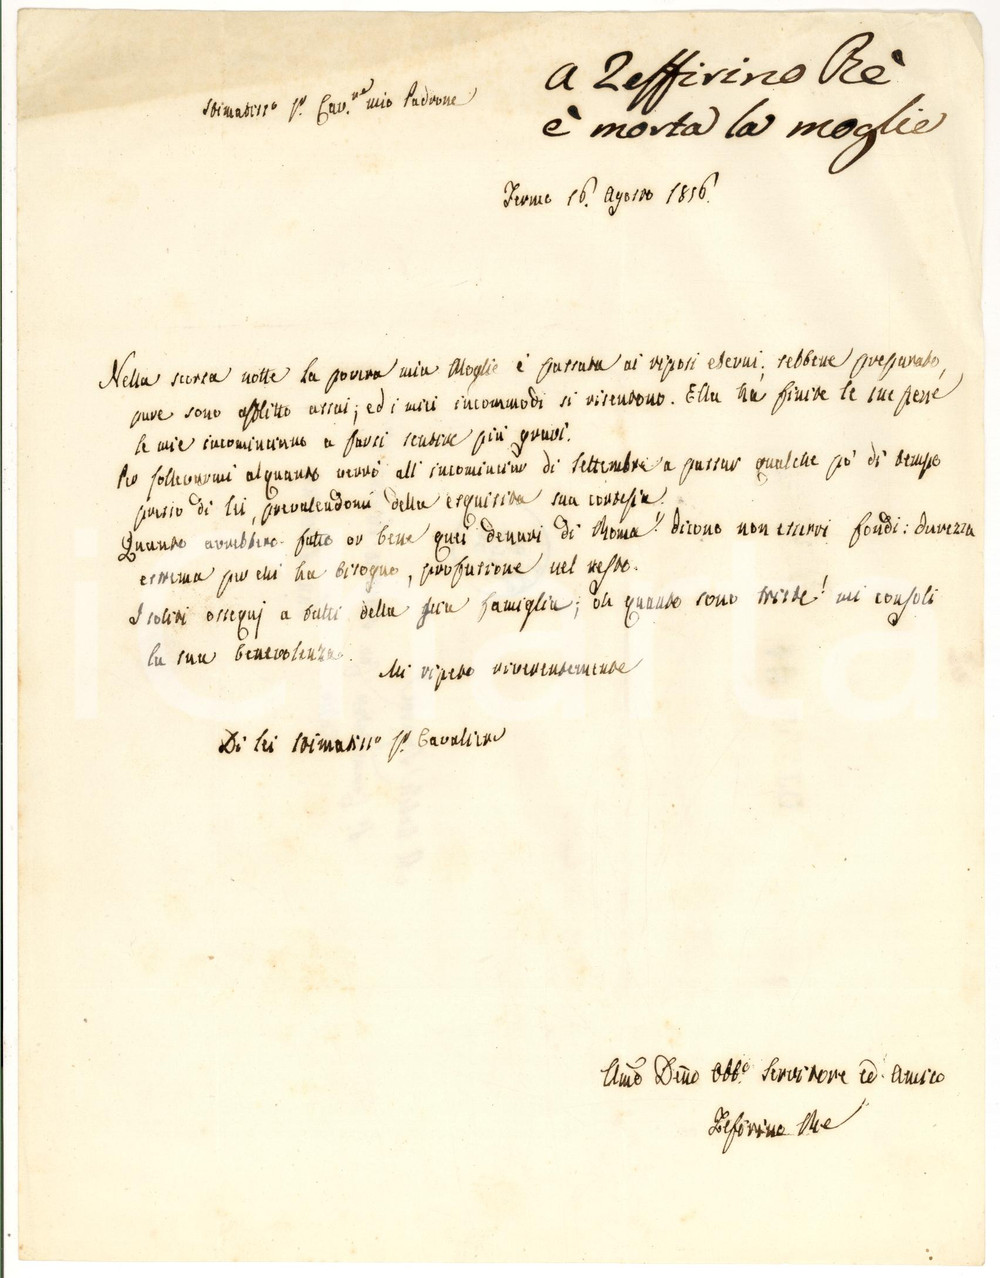 A Zeffirino Rè
è morta la moglie
Stimatiss.º Sr. Cav.re mio Padrone
Fermo 16. Agosto 1856.
Nella scorsa notte la povera mia Moglie è passata ai riposi eterni; sebbene preparato,
pure sono afflitto assai; ed i miei incommodi si risentono. Ella ha finite le sue pene
le mie incominciano a farsi sentire più gravi.
Per sollevarmi alquanto verrò all'incominciar di Settembre a passar qualche pò di tempo
presso di Lei, prevalendomi della esquisita sua cortesia.
Quanto avrebbero fatto or bene quei denari di Roma! dicono non esservi fondi: durezza
estrema per chi ha bisogno, profusione nel resto.
I soliti ossequj a tutti della sua famiglia; oh quanto sono triste! mi consoli
la sua benevolenza.
Mi ripeto riverentemente
Di Lei Stimatiss.º Sr. Cavaliere
Umo Dmo Obbº Servitore ed Amico
Zefirino Re